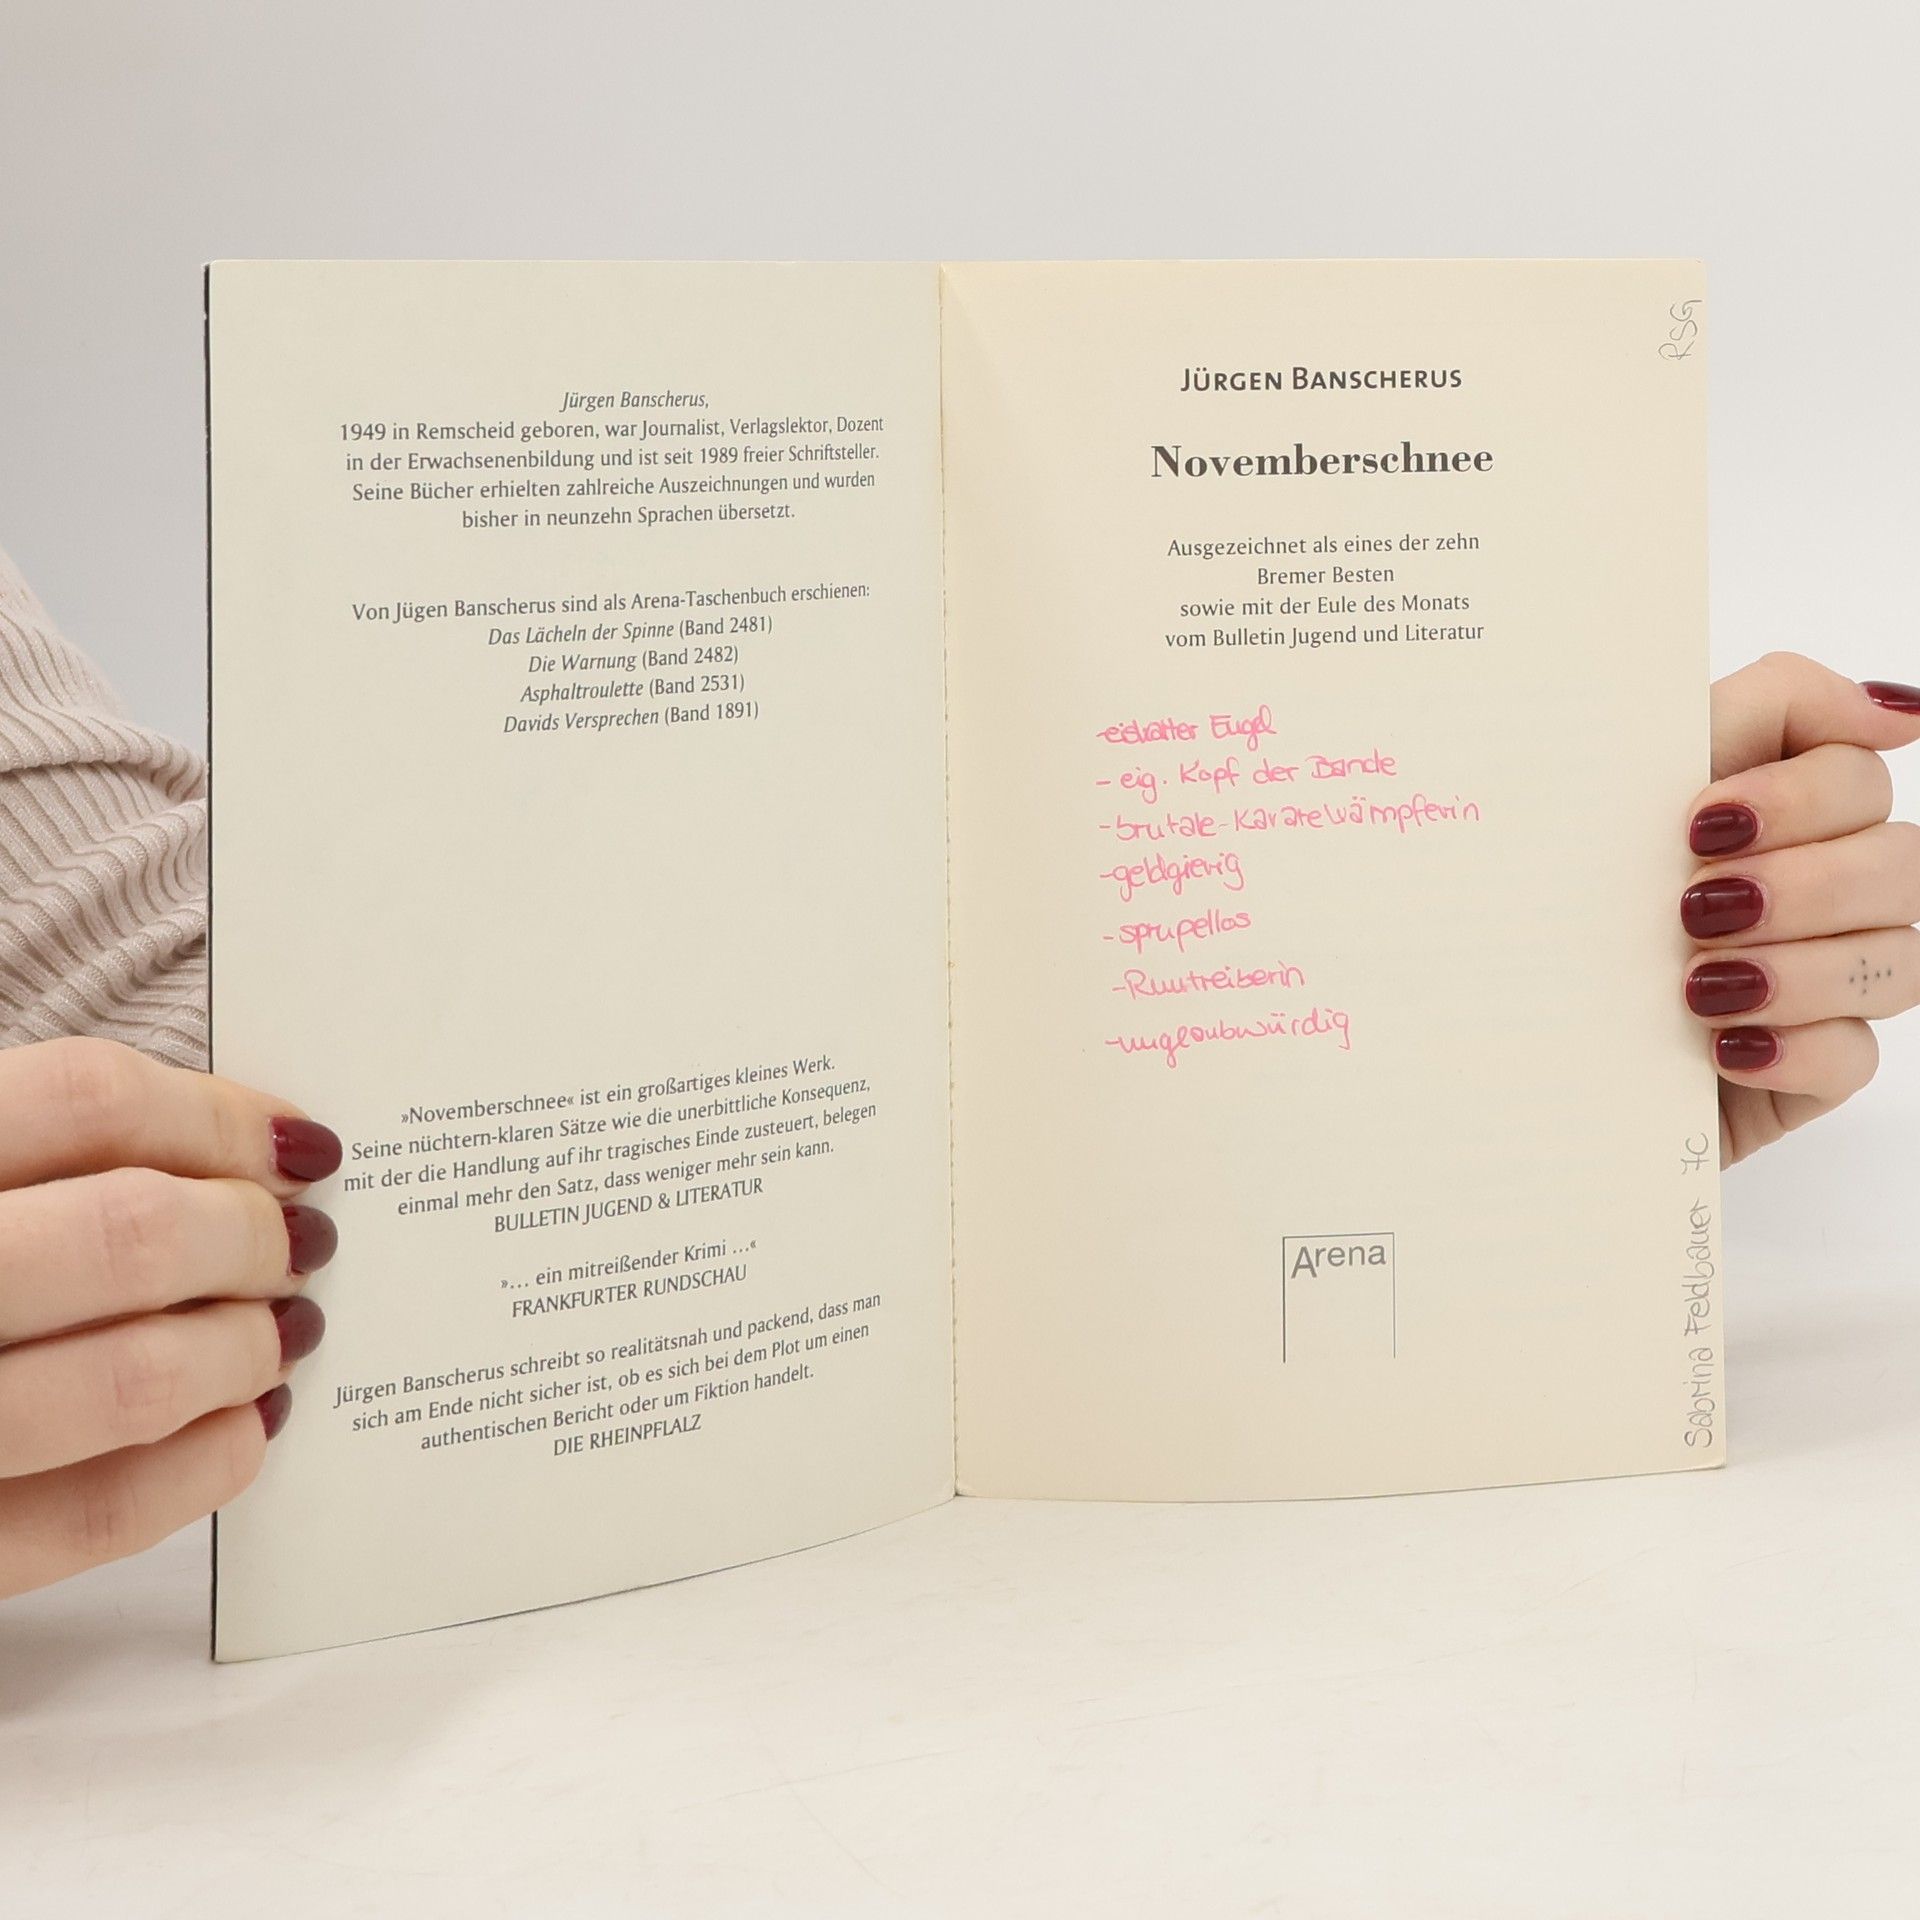 Jürgen Banscherus,
1949 in Remscheid geboren, war Journalist, Verlagslektor, Dozent
in der Erwachsenenbildung und ist seit 1989 freier Schriftsteller.
Seine Bücher erhielten zahlreiche Auszeichnungen und wurden
bisher in neunzehn Sprachen übersetzt.
Von Jügen Banscherus sind als Arena-Taschenbuch erschienen:
Das Lächeln der Spinne (Band 2481)
Die Warnung (Band 2482)
Asphaltroulette (Band 2531)
Davids Versprechen (Band 1891)
»Novemberschnee« ist ein großartiges kleines Werk.
Seine nüchtern-klaren Sätze wie die unerbittliche Konsequenz,
mit der die Handlung auf ihr tragisches Einde zusteuert, belegen
einmal mehr den Satz, dass weniger mehr sein kann.
BULLETIN JUGEND & LITERATUR
»... ein mitreißender Krimi ...«
FRANKFURTER RUNDSCHAU
Jürgen Banscherus schreibt so realitätsnah und packend, dass man
sich am Ende nicht sicher ist, ob es sich bei dem Plot um einen
authentischen Bericht oder um Fiktion handelt.
DIE RHEINPFLALZ
RSG
JÜRGEN BANSCHERUS
Novemberschnee
Ausgezeichnet als eines der zehn
Bremer Besten
sowie mit der Eule des Monats
vom Bulletin Jugend und Literatur
-eiskalter Engel
- eig. Kopf der Bande
-brutale-Karatekämpferin
-geldgierig
-skrupellos
-unglaubwürdig
Arena
Sabrina Feldbauer 7C